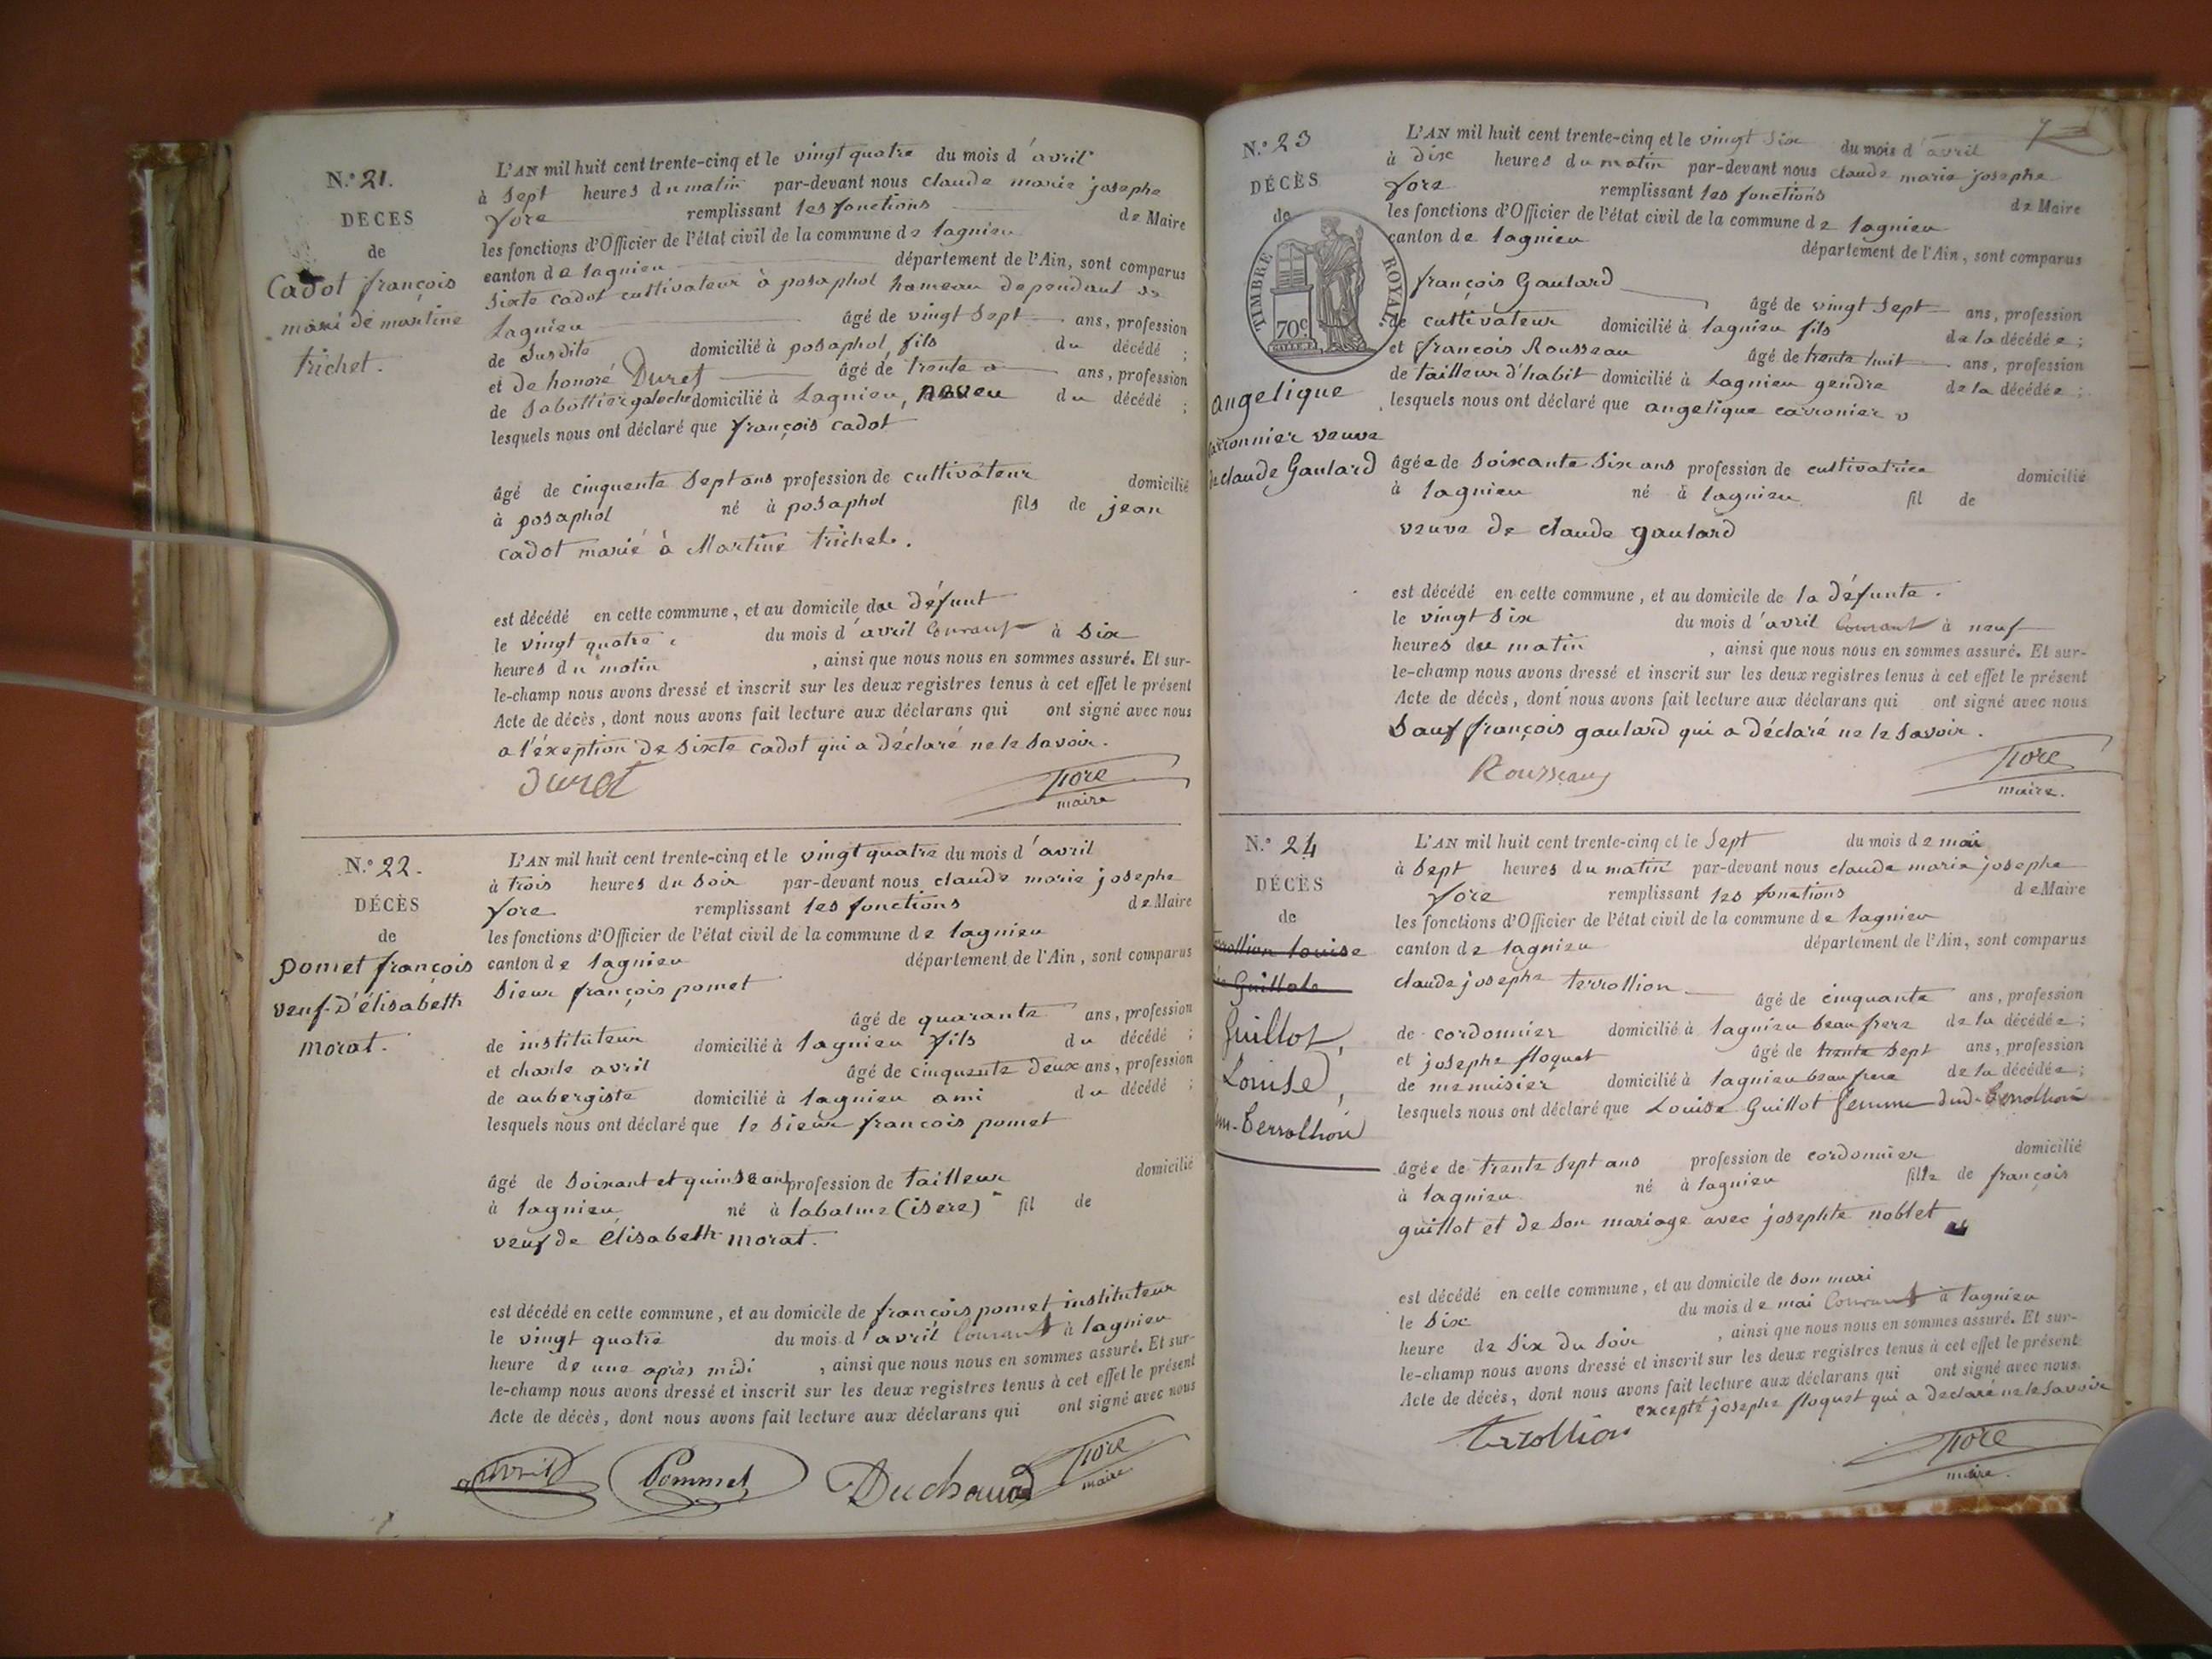 N.° 21.
DECES
de
Cadot françois
mari de martine
trichet.
L'AN mil huit cent trente-cinq et le vingt quatre du mois d'avril
à sept heures du matin par-devant nous claude marie josephe
Yore remplissant les fonctions de Maire
les fonctions d'Officier de l'état civil de la commune de lagnieu
canton de lagnieu département de l'Ain, sont comparus
sixte cadot cultivateur à posaphol hameau dependant de
Lagnieu âgé de vingt sept ans, profession
de susdite domicilié à posaphol, fils du décédé ;
et de honoré Duret âgé de trente ans, profession
de sabottier galoche domicilié à Lagnieu, neveu du décédé ;
lesquels nous ont déclaré que françois cadot
âgé de cinquente sept ans profession de cultivateur domicilié
à posaphol né à posaphol fils de jean
cadot marié à Martine trichet.
est décédé en cette commune, et au domicile du défunt
le vingt quatre du mois d'avril Courant à six
heures du matin , ainsi que nous nous en sommes assuré. Et sur-
le-champ nous avons dressé et inscrit sur les deux registres tenus à cet effet le présent
Acte de décès, dont nous avons fait lecture aux déclarans qui ont signé avec nous
a l'éxeption de sixte cadot qui a déclaré ne le savoir.
Duret Yore
maire
N.° 22.
DÉCÈS
de
pomet françois
veuf d'élisabeth
morat.
L'AN mil huit cent trente-cinq et le vingt quatre du mois d'avril
à trois heures du soir par-devant nous claude marie josephe
Yore remplissant les fonctions de Maire
les fonctions d'Officier de l'état civil de la commune de lagnieu
canton de lagnieu département de l'Ain, sont comparus
sieur françois pomet
âgé de quarante ans, profession
de instituteur domicilié à lagnieu fils du décédé ;
et charle avril âgé de cinquente deux ans, profession
de aubergiste domicilié à lagnieu ami du décédé ;
lesquels nous ont déclaré que le sieur françois pomet
âgé de soixant et quinse ans profession de tailleur domicilié
à lagnieu né à labalme (isere) fil de
veuf de élisabeth morat.
est décédé en cette commune, et au domicile de françois pomet instituteur
le vingt quatre du mois d'avril Courant à lagnieu
heure de une après midi , ainsi que nous nous en sommes assuré. Et sur-
le-champ nous avons dressé et inscrit sur les deux registres tenus à cet effet le présent
Acte de décès, dont nous avons fait lecture aux déclarans qui ont signé avec nous
avril Pommet Duchaud Yore
maire
N.° 23
DÉCÈS
de
TIMBRE ROYAL
70c
angelique
carronnier veuve
de claude Gaulard
L'AN mil huit cent trente-cinq et le vingt six du mois d'avril
à dix heures du matin par-devant nous claude marie josephe
Yore remplissant les fonctions de Maire
les fonctions d'Officier de l'état civil de la commune de lagnieu
canton de lagnieu département de l'Ain, sont comparus
françois Gaulard
âgé de vingt sept ans, profession
de cultivateur domicilié à lagnieu fils de la décédée ;
et françois Rousseau âgé de trente huit ans, profession
de tailleur d'habit domicilié à Lagnieu gendre de la décédée ;
lesquels nous ont déclaré que angelique carronier
âgée de soixante six ans profession de cultivatrice domicilié
à lagnieu né à lagnieu fil de
veuve de claude gaulard
est décédé en cette commune, et au domicile de la défunte.
le vingt six du mois d'avril Courant à neuf
heures du matin , ainsi que nous nous en sommes assuré. Et sur-
le-champ nous avons dressé et inscrit sur les deux registres tenus à cet effet le présent
Acte de décès, dont nous avons fait lecture aux déclarans qui ont signé avec nous
sauf françois gaulard qui a déclaré ne le savoir.
Rousseau Yore
maire.
N.° 24
DÉCÈS
de
terrollion louise
née Guillote
Guillot,
Louise,
fm. Terrollion
L'AN mil huit cent trente-cinq et le sept du mois de mai
à sept heures du matin par-devant nous claude marie josephe
Yore remplissant les fonctions de Maire
les fonctions d'Officier de l'état civil de la commune de lagnieu
canton de lagnieu département de l'Ain, sont comparus
claude josephe terrollion âgé de cinquante ans, profession
de cordonnier domicilié à lagnieu beau frere de la décédée ;
et josephe floquet âgé de trente sept ans, profession
de menuisier domicilié à lagnieu beau frere de la décédée ;
lesquels nous ont déclaré que Louise Guillot femme dud. Terrollion
âgée de trente sept ans profession de cordonnier domicilié
à lagnieu né à lagnieu fille de françois
guillot et de son mariage avec josephte noblet
est décédé en cette commune, et au domicile de son mari
le six du mois de mai Courant à lagnieu
heure de six du soir , ainsi que nous nous en sommes assuré. Et sur-
le-champ nous avons dressé et inscrit sur les deux registres tenus à cet effet le présent
Acte de décès, dont nous avons fait lecture aux déclarans qui ont signé avec nous
excepté josephe floquet qui a declaré ne le savoir
terrollion Yore
maire.